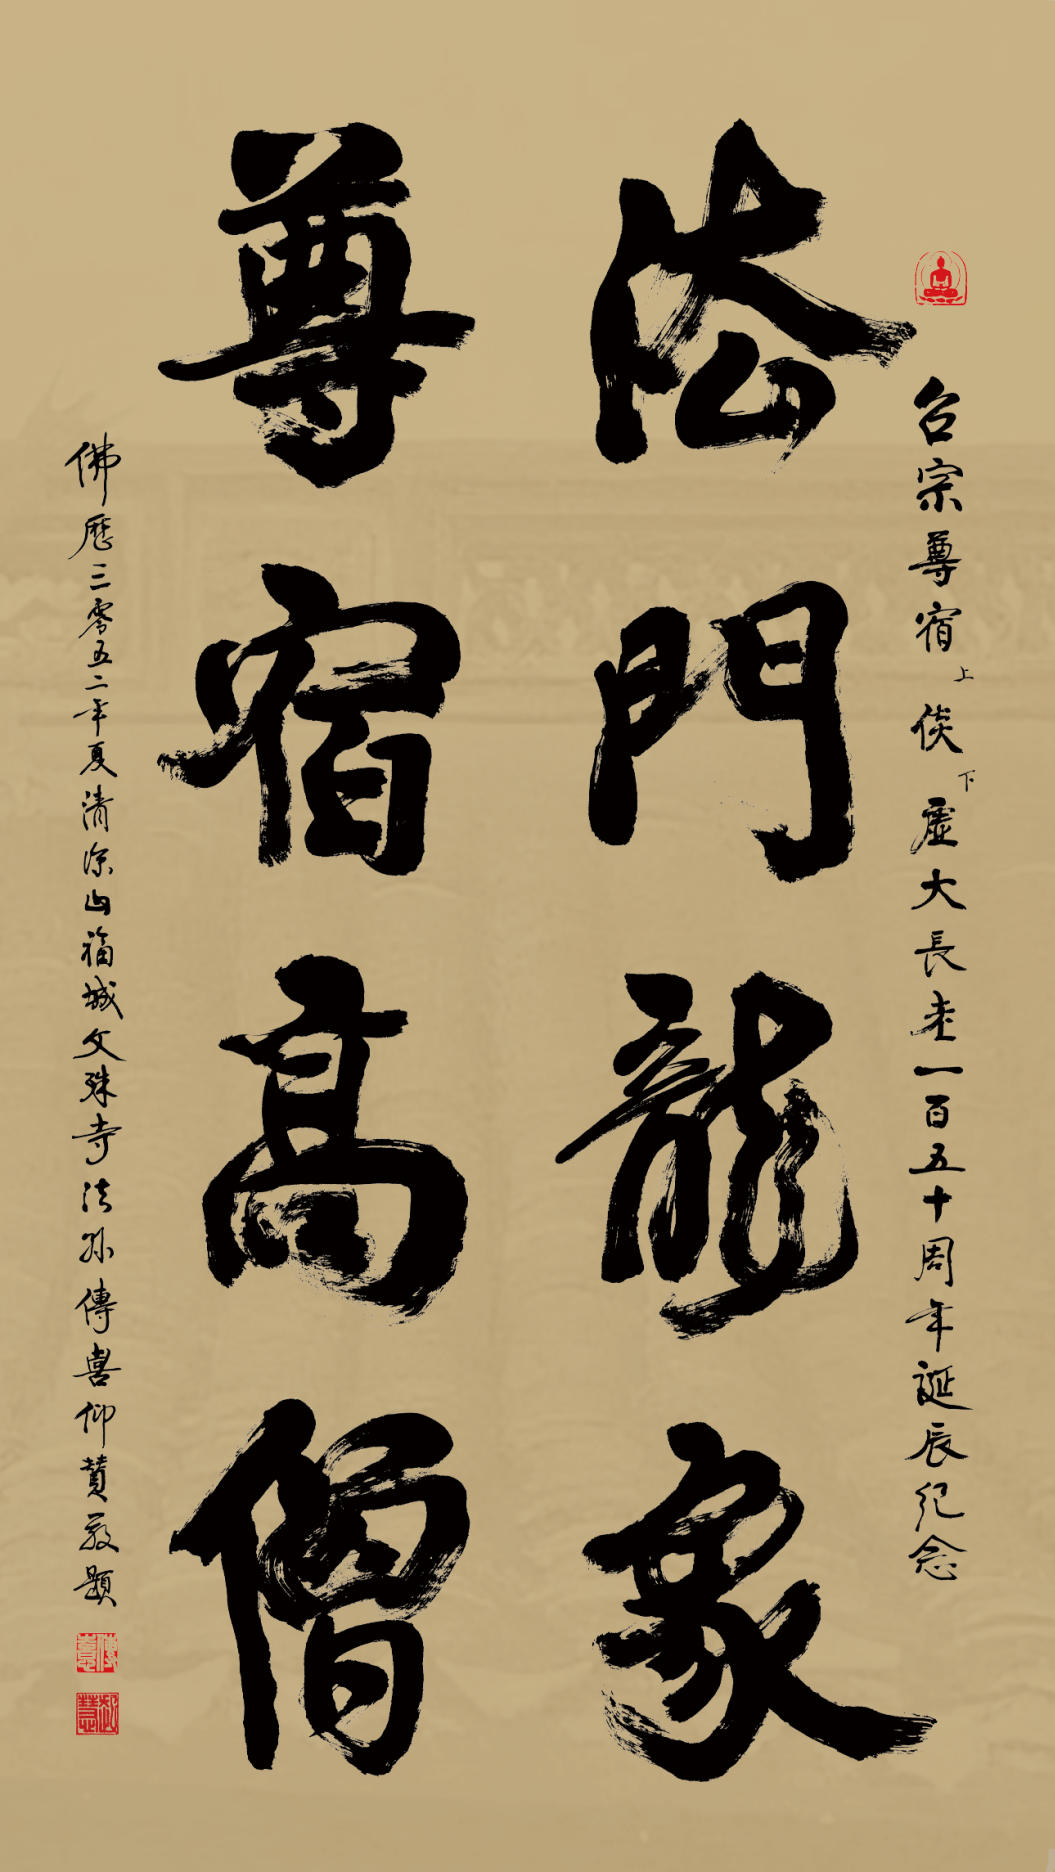 台宗尊宿上倓下虛大長老一百五十周年誕辰纪念
法門龍象
尊宿高僧
佛歷三零五二年夏清涼山福城文殊寺法孫傳喜仰贊敬題